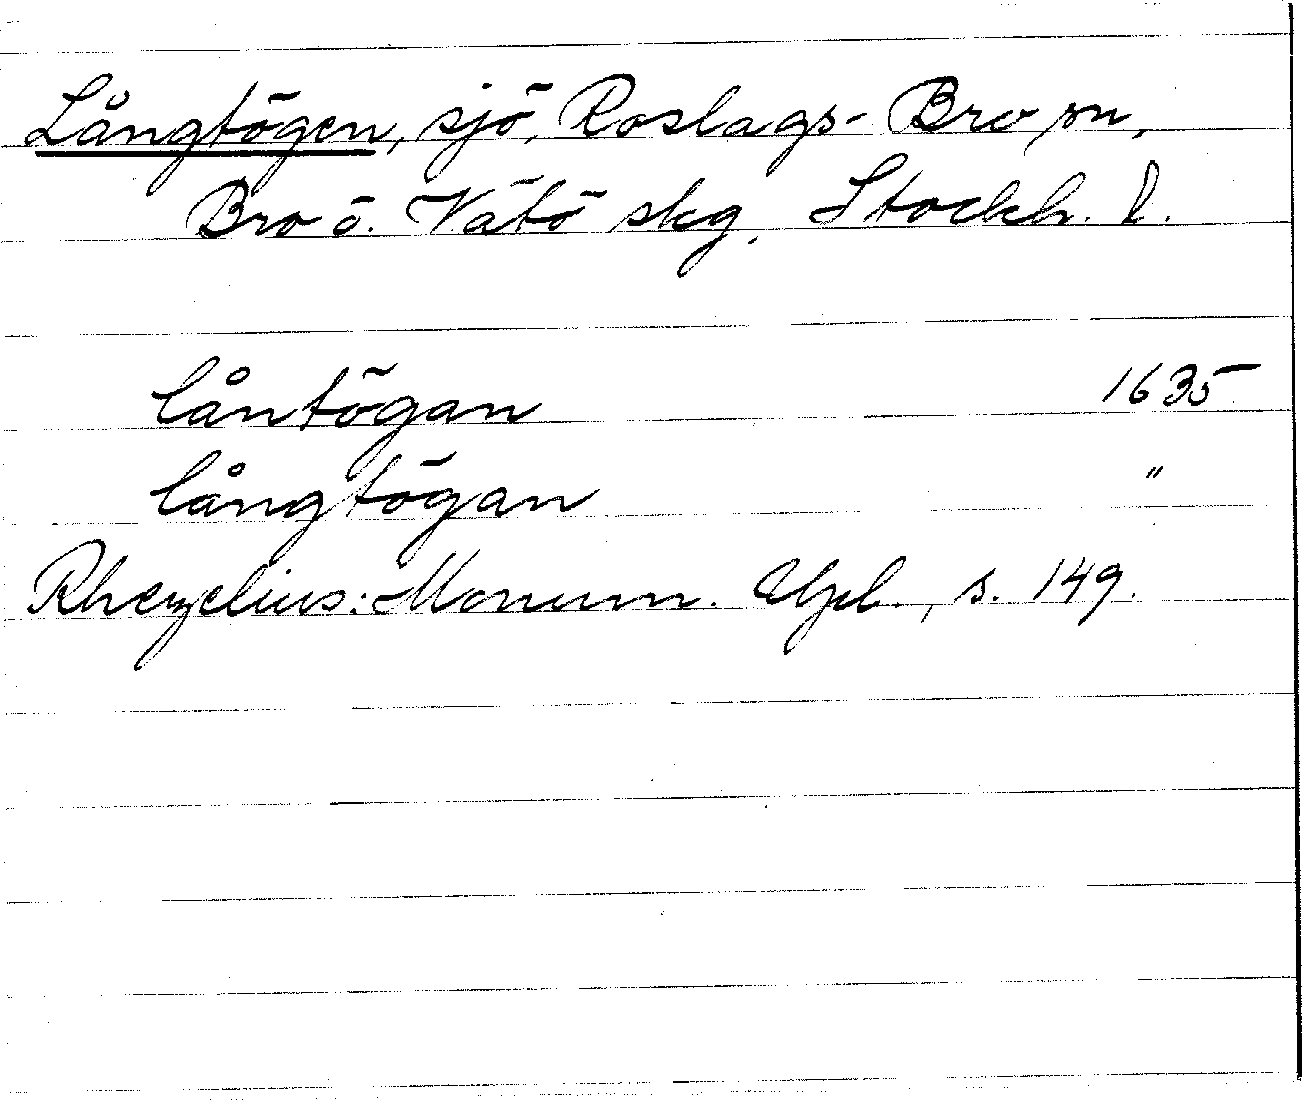 Långtögen, sjö, Roslags-Bro sn,
Bro o. Vätö skg. Stockh. l.
låntögan 1635
långtögan "
Rhezelius: Monum. Upl., s. 149.